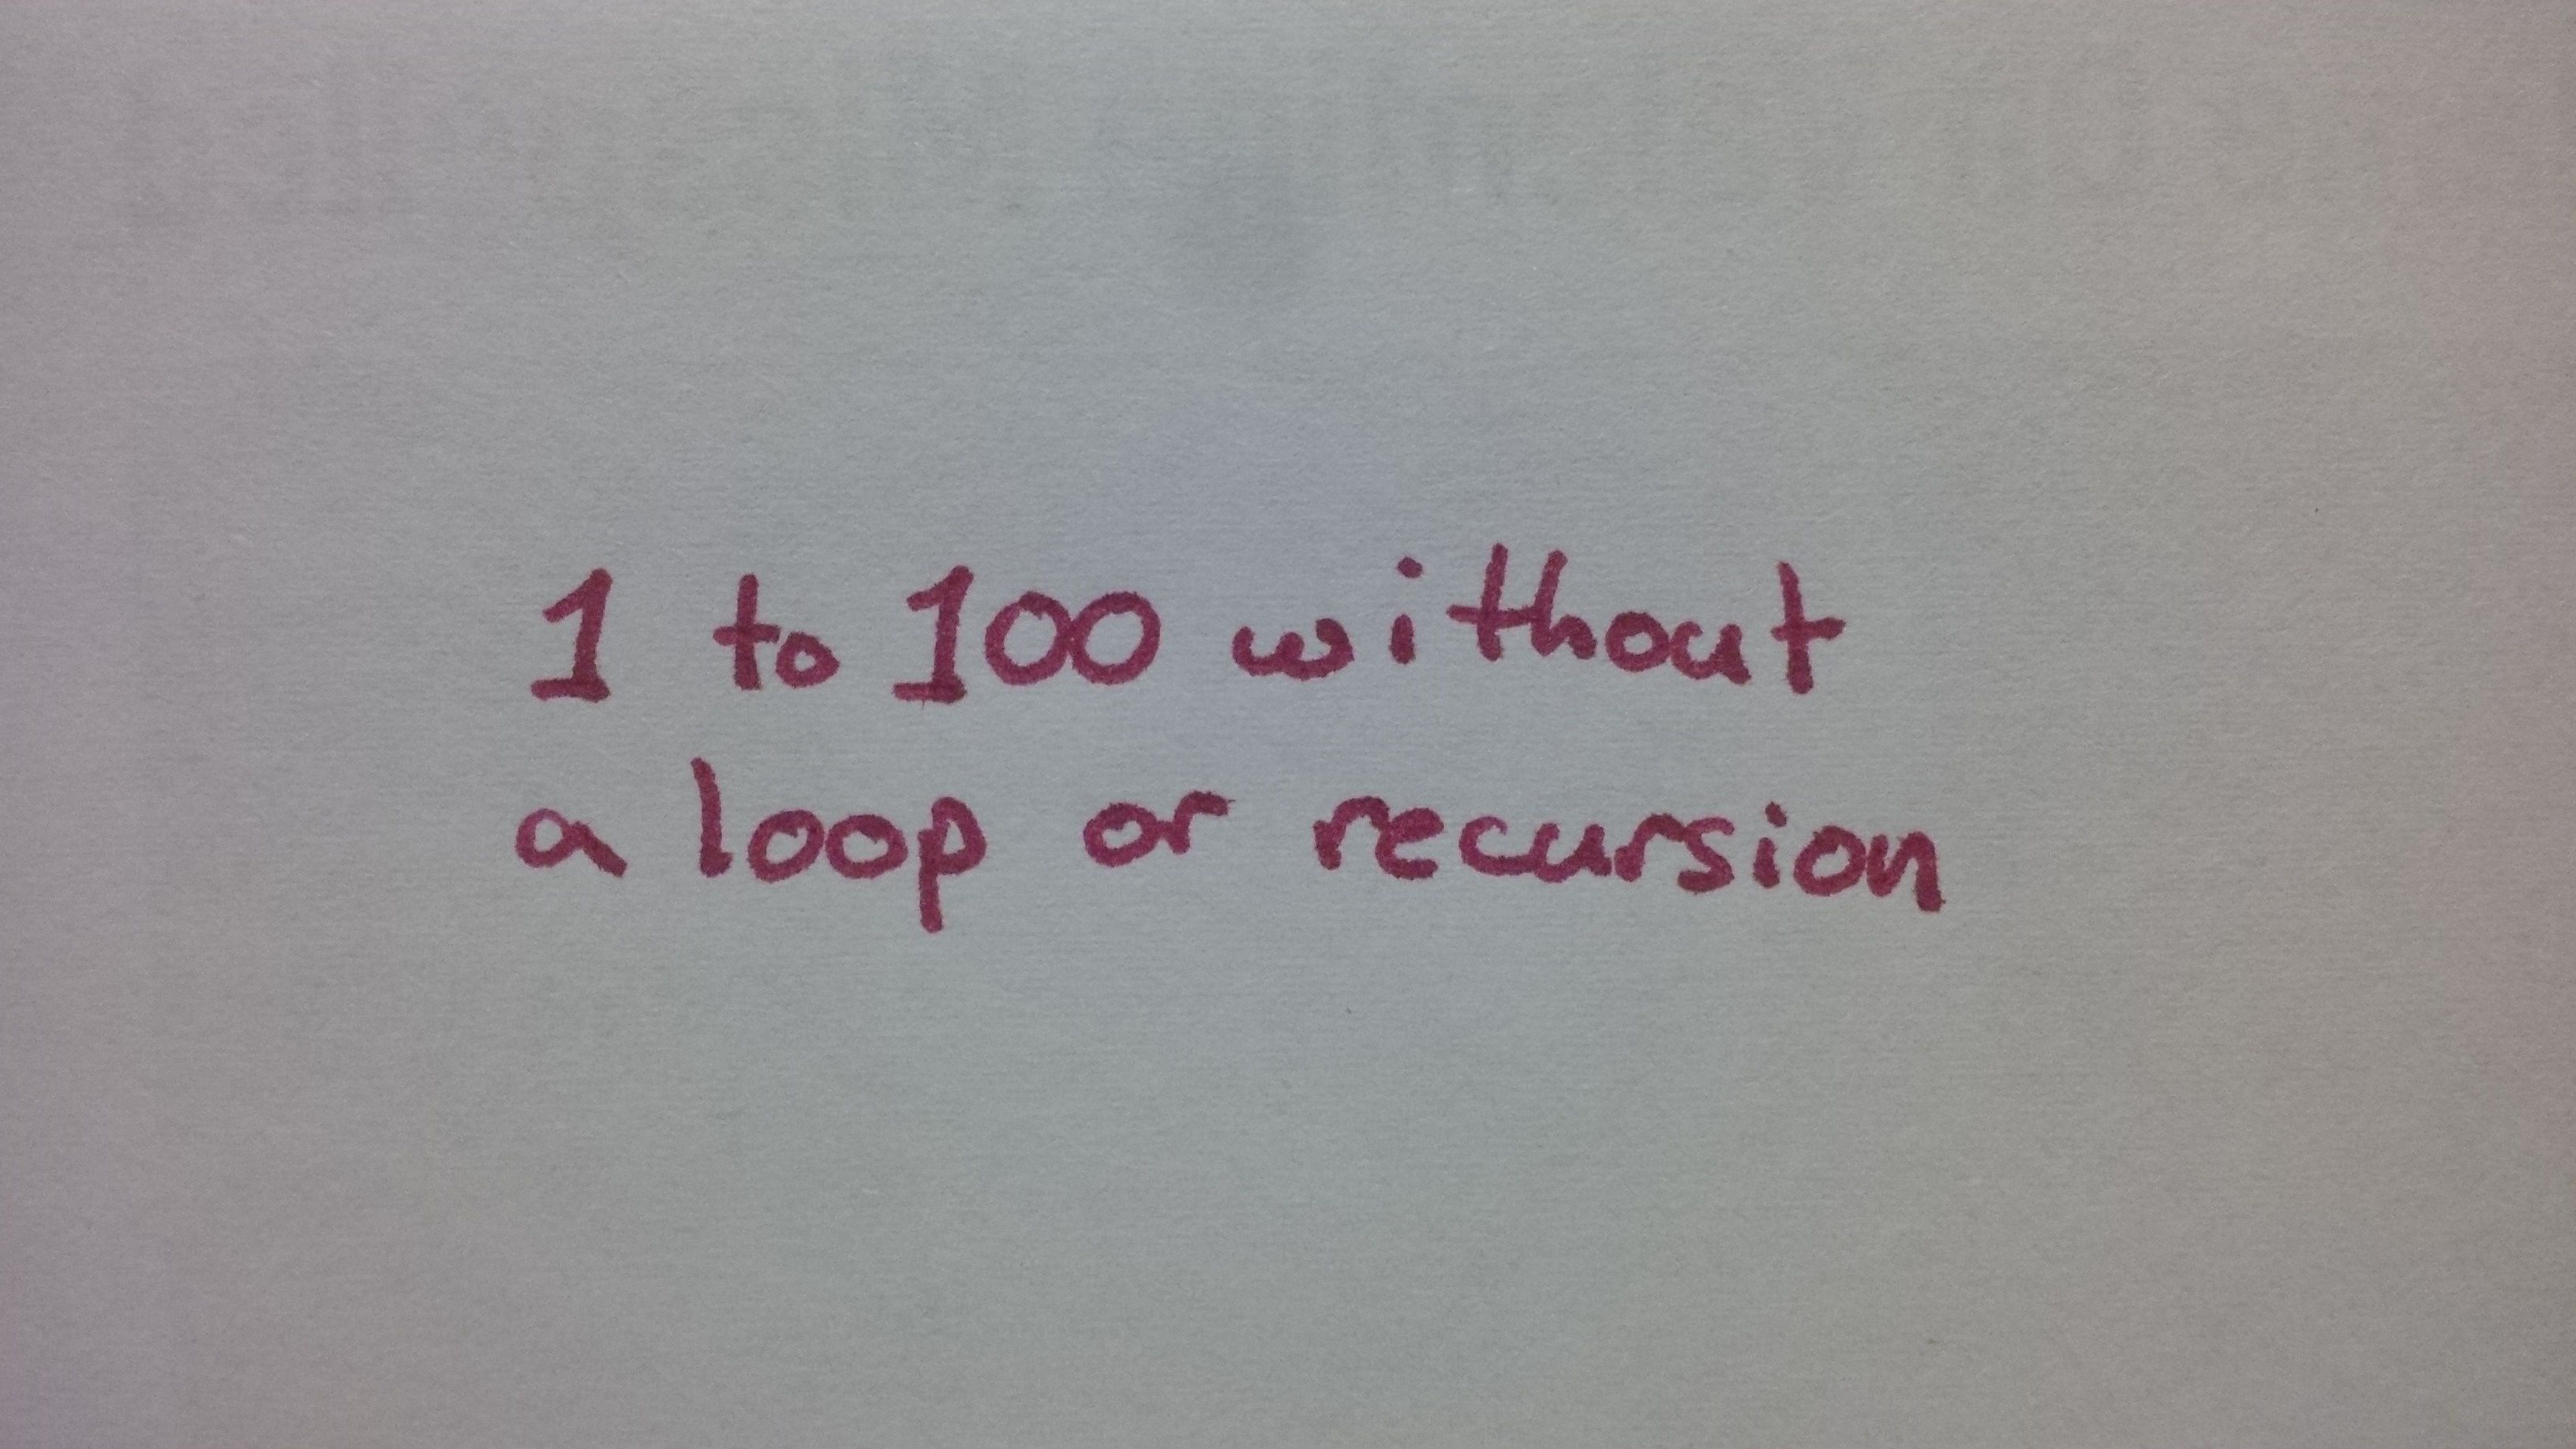 1 to 100 without
a loop or recursion